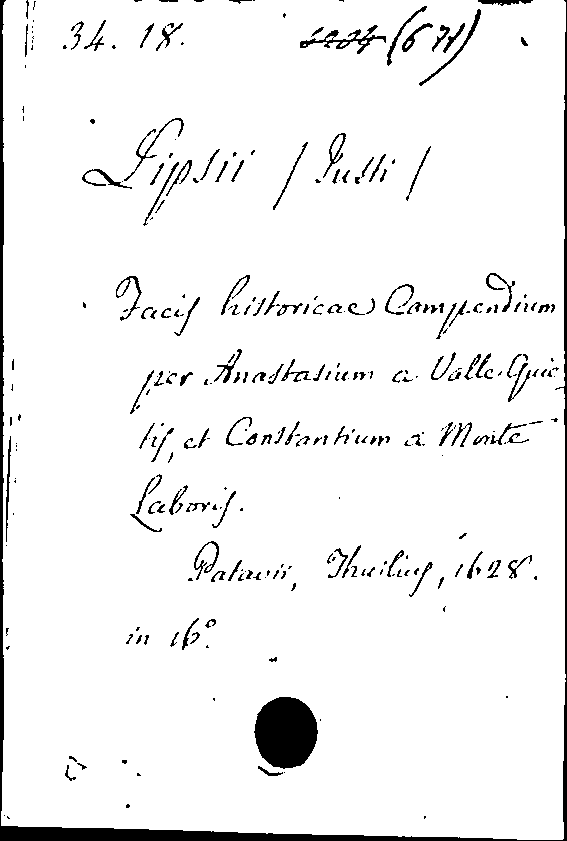 34. 18. (671)
Lipsii / Justi /
Facis historicae Compendium
per Anastasium a Valle Quie-
tis, et Constantium a Monte
Laboris.
Patavii, Thuilius, 1628.
in 16°.